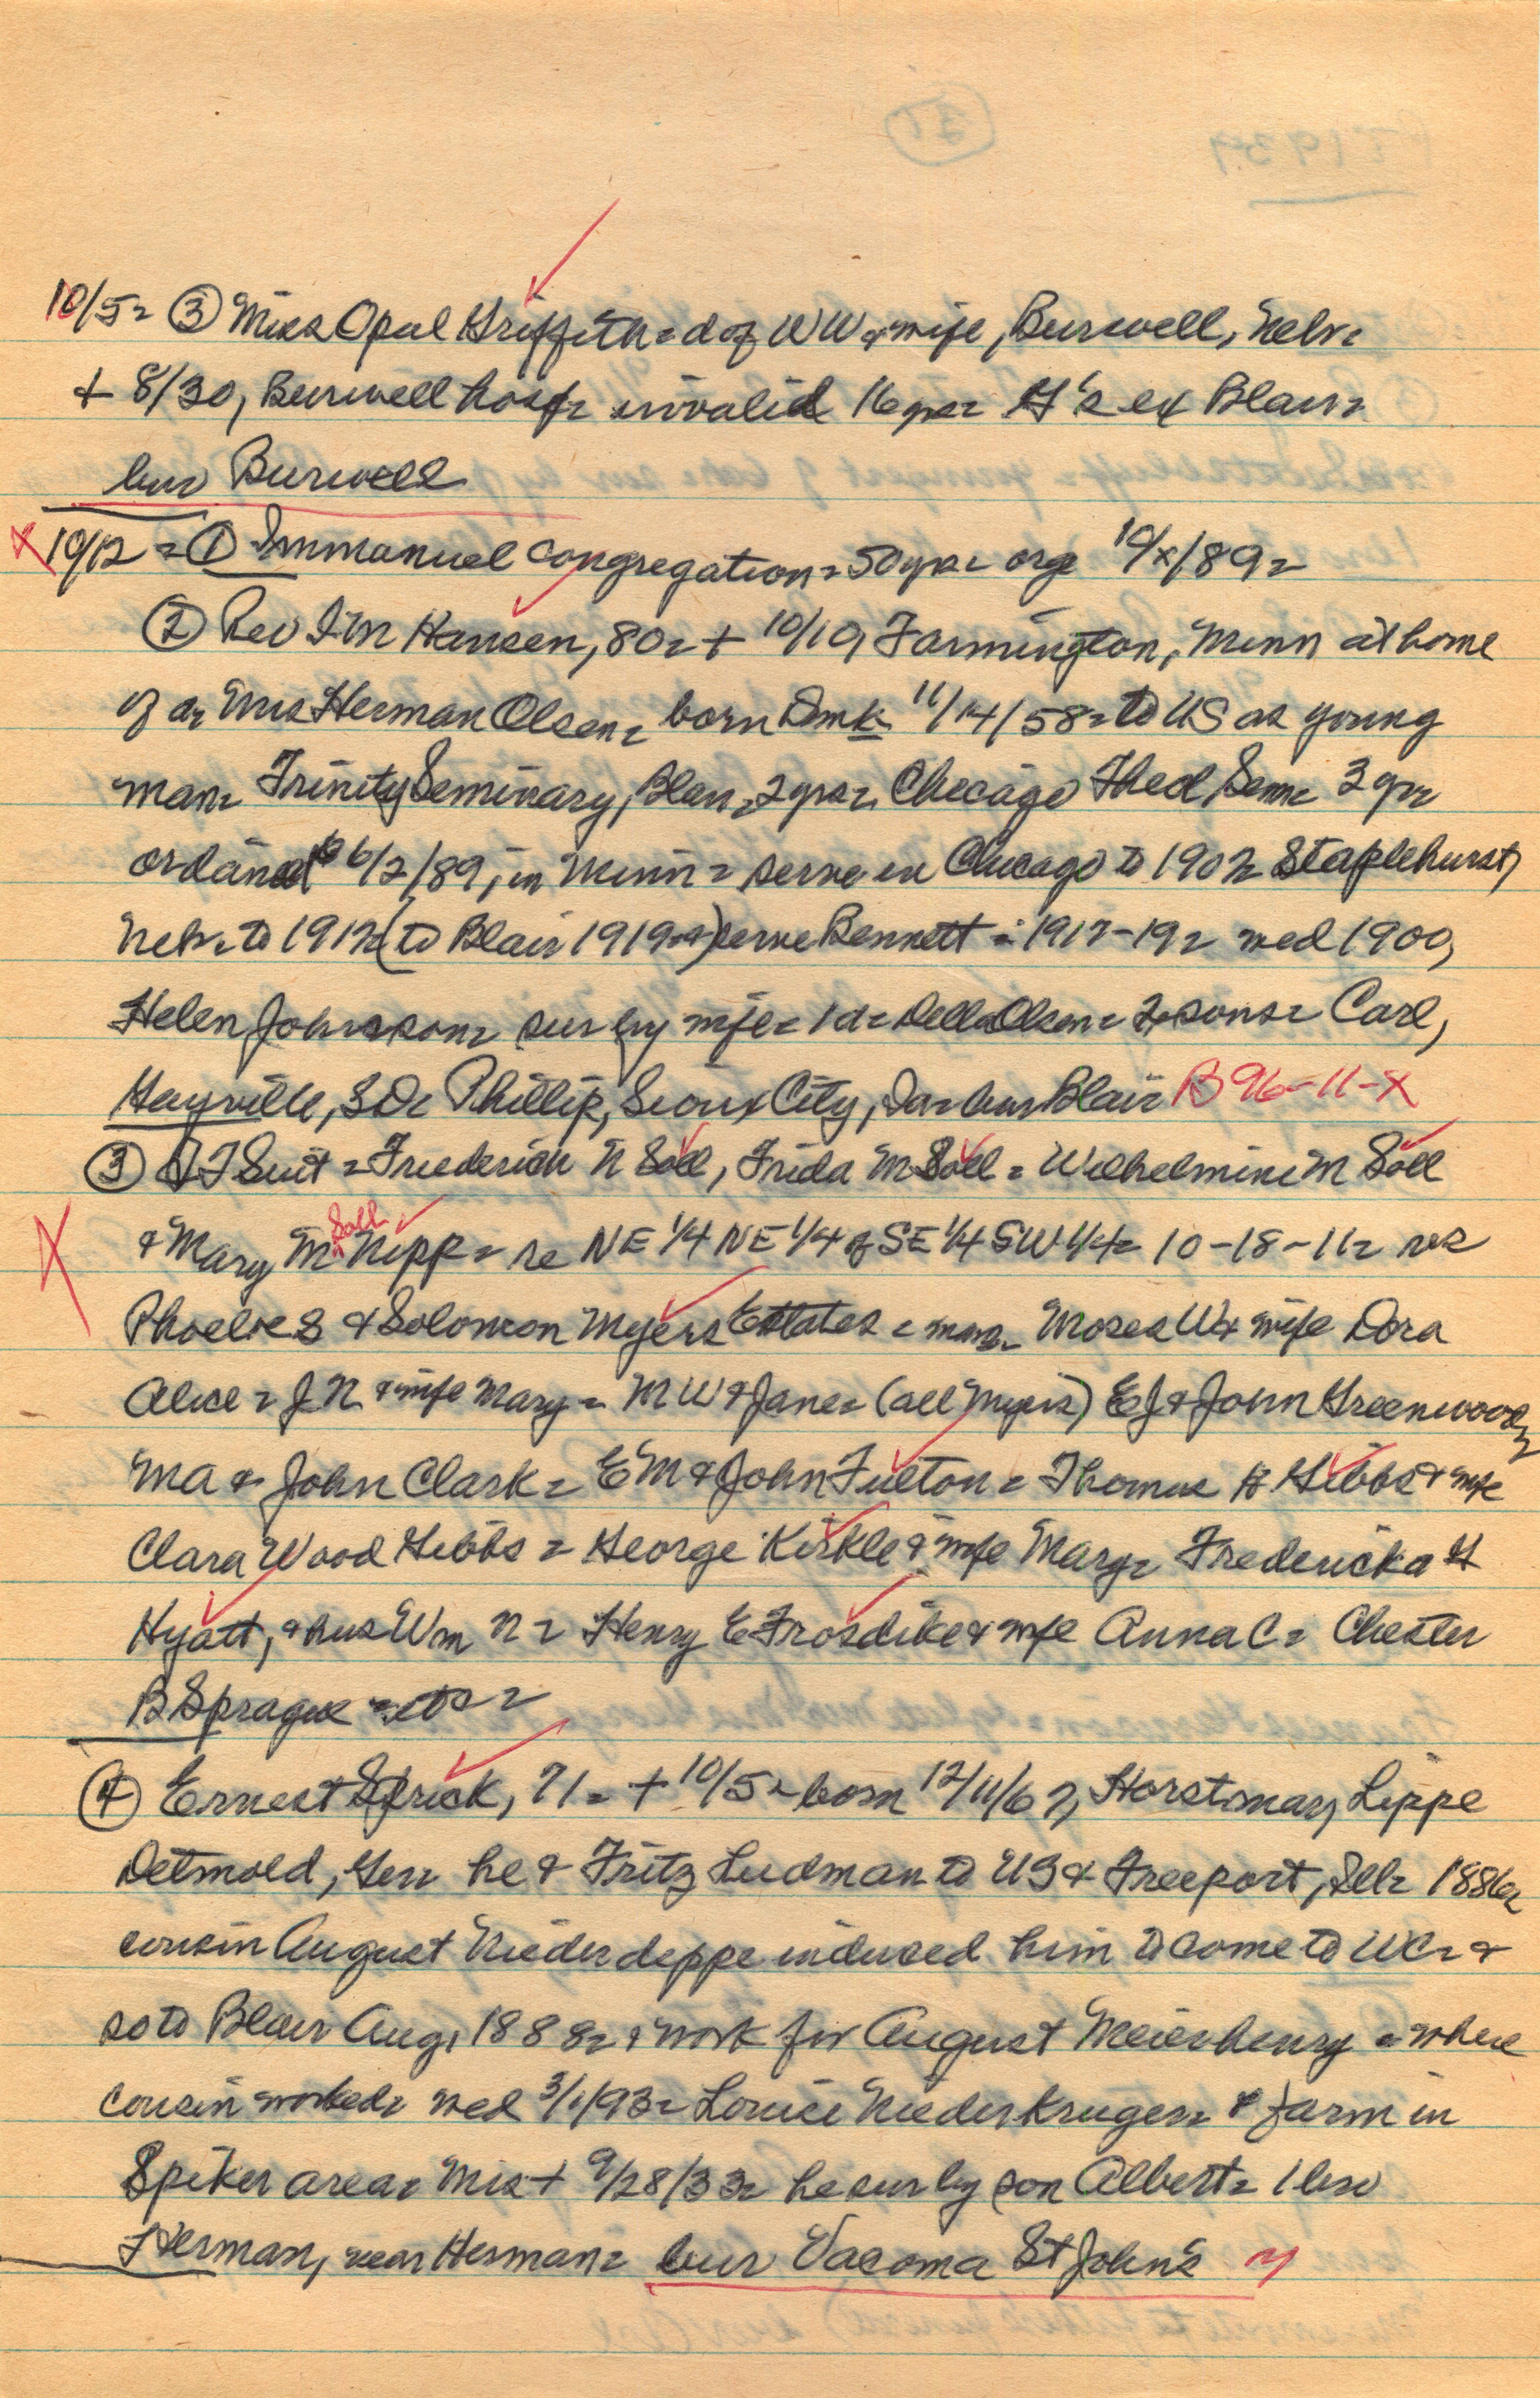 10/5= ③ Miss Opal Griffith = d of WW & wife, Burwell, Nebr=
+ 8/30, Burwell hosp= invalid 16 yrs= G's ex Blair=
bur Burwell
10/12 = ① Immanuel Congregation = 50 yrs= org 10/x/89=
② Rev I M Hansen, 80= + 10/10, Farmington, Minn at home
of d= Mrs Herman Olsen= born Dmk 11/14/58= to US as young
man= Trinity Seminary, Blair, 2 yrs=, Chicago Theol Sem= 3 yrs
ordained 6/2/89, in Minn = serve in Chicago to 1902= Staplehurst,
Nebr= to 1912= (to Blair 1919) serve Bennett = 1917-19= wed 1900,
Helen Johnson= sur by wife= 1 d= Della Olsen= 2 sons= Carl,
Hayville, SD= Phillip, Sioux City, Ia= bur Blair B 96-11-X
③ QT Suit = Friederich N Söll, Frida M Söll = Wilhelmine M Söll
& Mary M Soll Nipp = re NE 1/4 NE 1/4 of SE 1/4 SW 1/4= 10-18-11= vs
Phoebe S & Solomon Myers Estates = Moses W & wife Dora
Alice = J N & wife Mary = M W & Jane= (all Myers) E J & John Greenwood=
MA & John Clark = E M & John Fulton = Thomas H Gibbs & wife
Clara Wood Gibbs = George Kirkle & wife Mary= Fredericka H
Hyatt, & hus Wm N = Henry E Frosdike & wife Anna C = Chester
B Sprague = etc =
④ Ernest Sprick, 71= + 10/5= born 12/11/62, Horstmar, Lippe
Detmold, Ger= he & Fritz Ludman to US & Freeport, Ill= 1886=
cousin August Niederdeppe induced him to come to WC= &
so to Blair Aug, 1888= & work for August Meierhenry = where
cousin worked= wed 3/1/93= Louise Niederkruger= & farm in
Spiker area= Mrs + 9/28/33= he sur by son Albert= 1 bro
Herman, near Herman= bur Vacoma St John's